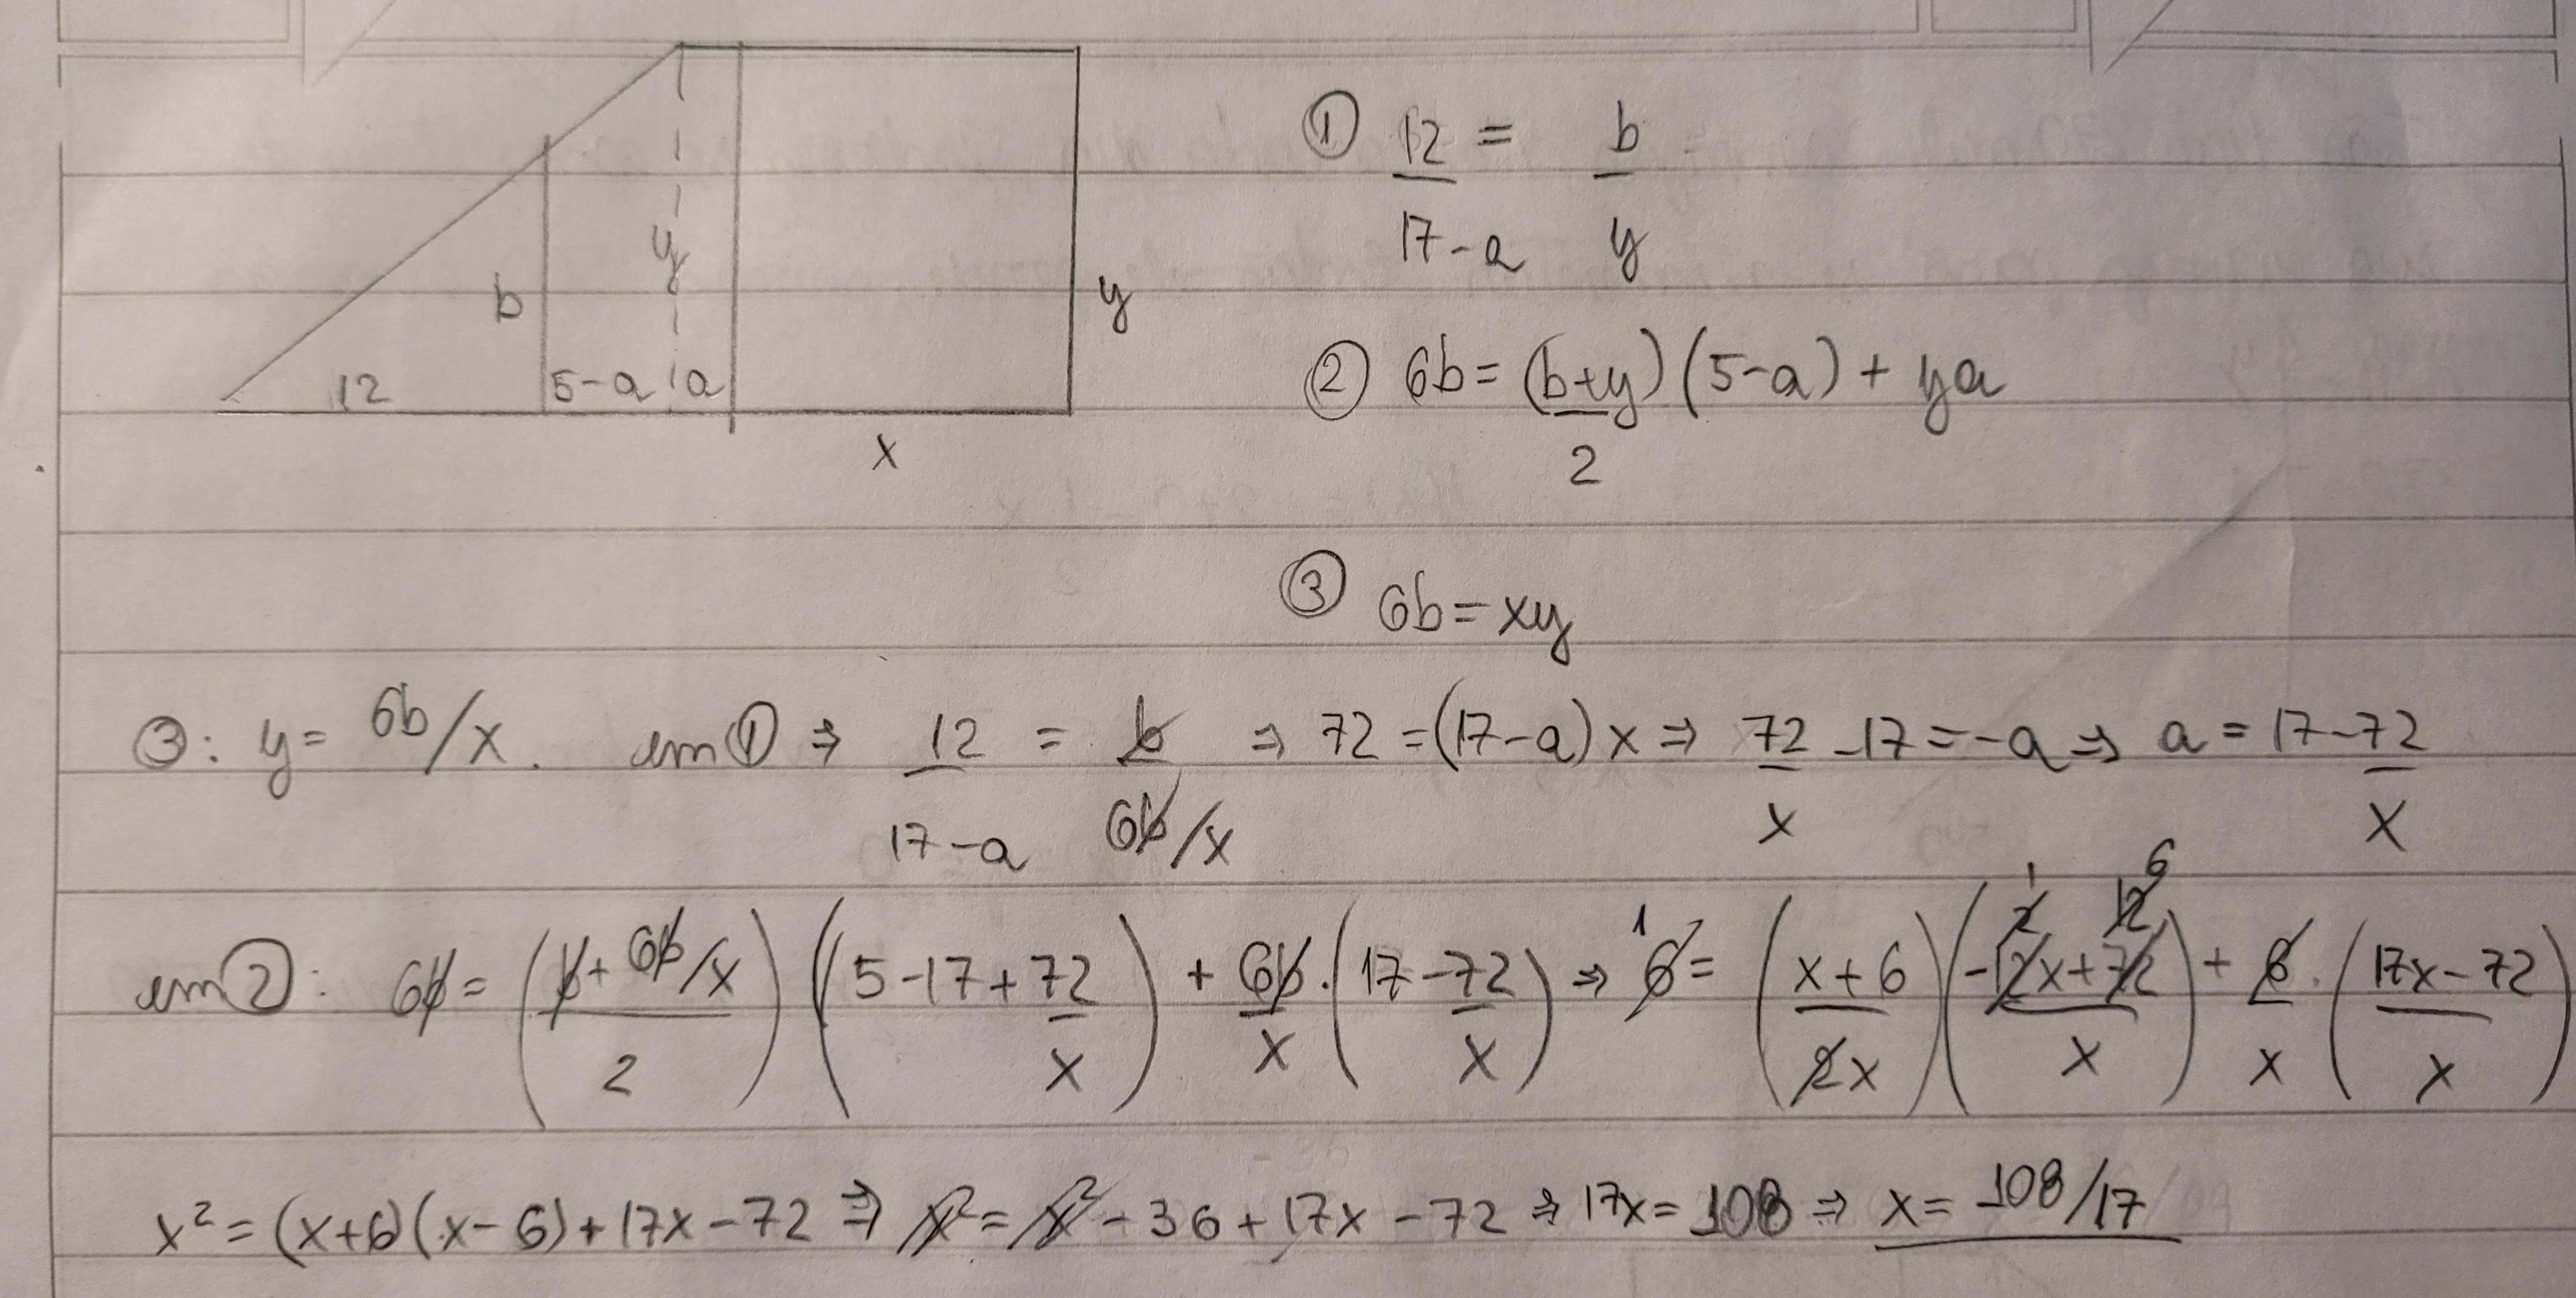 ① 12/(17-a) = b/y
y
b
y
12 5-a a
x
② 6b = ((b+y)/2)(5-a) + ya
③ 6b = xy
③: y = 6b/x. em ① ⇒ 12/(17-a) = b/(6b/x) ⇒ 72 = (17-a)x ⇒ 72/x - 17 = -a ⇒ a = 17 - 72/x
em ②: 6b = ((b + 6b/x)/2)(5 - 17 + 72/x) + 6b/x · (17 - 72/x) ⇒ 6 1 = ((x+6)/2x)((-12x + 72)/x) 1 12 6 + 6/x · ((17x - 72)/x)
x² = (x+6)(x-6) + 17x - 72 ⇒ x² = x² - 36 + 17x - 72 ⇒ 17x = 108 ⇒ x = 108/17